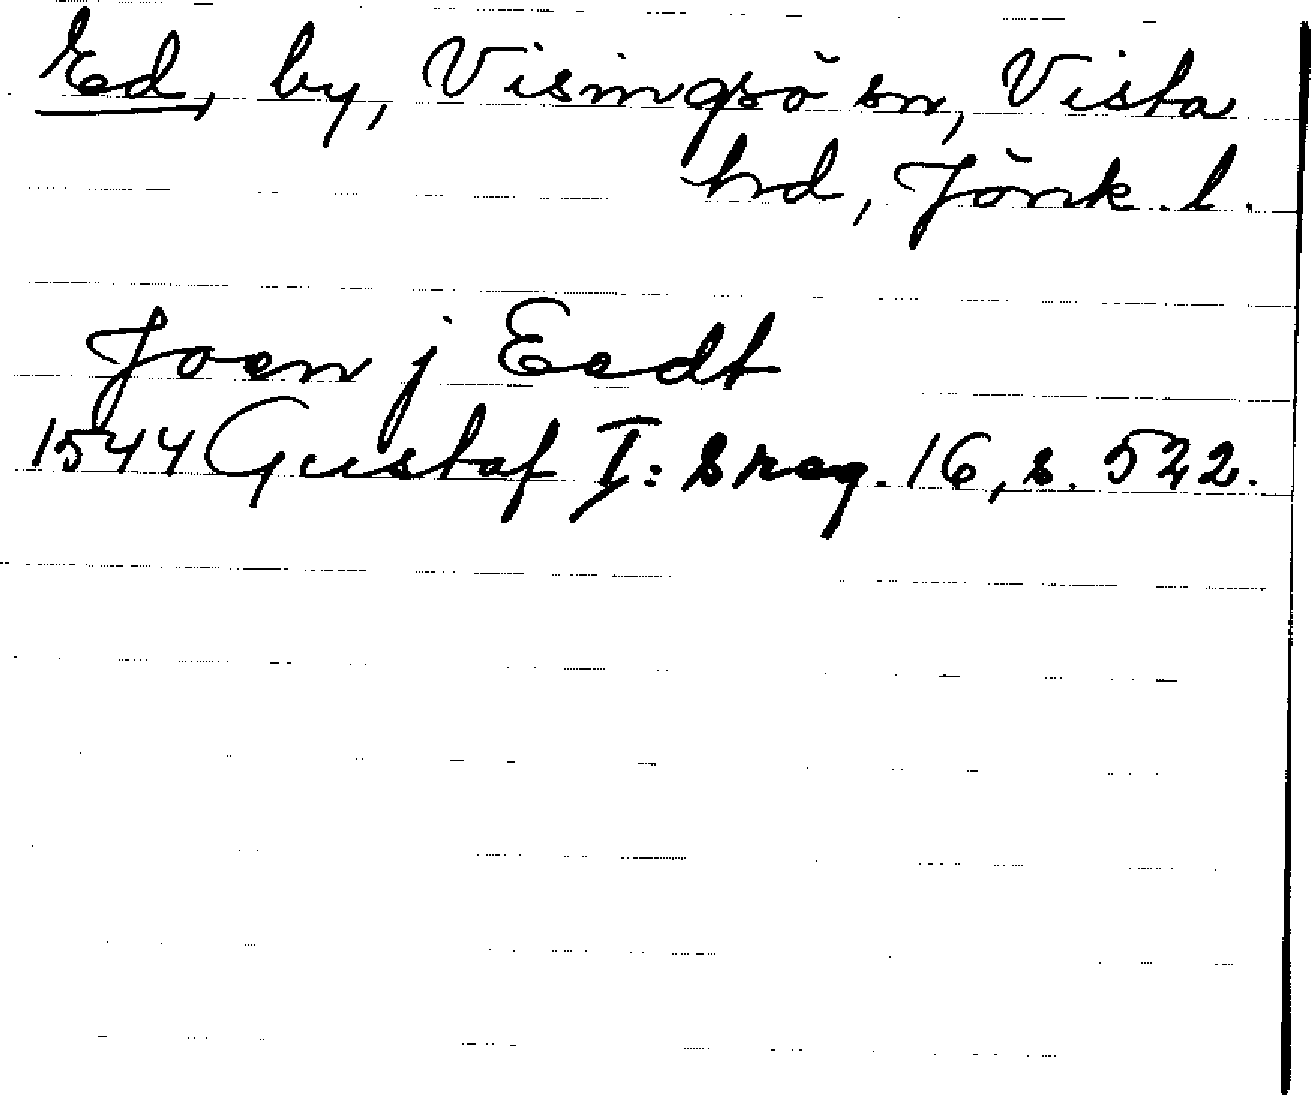 Ed, by, Visingsö sn, Vista
hd, Jönk. l.
Joen j Eedt
1544 Gustaf I:s reg. 16, s. 522.